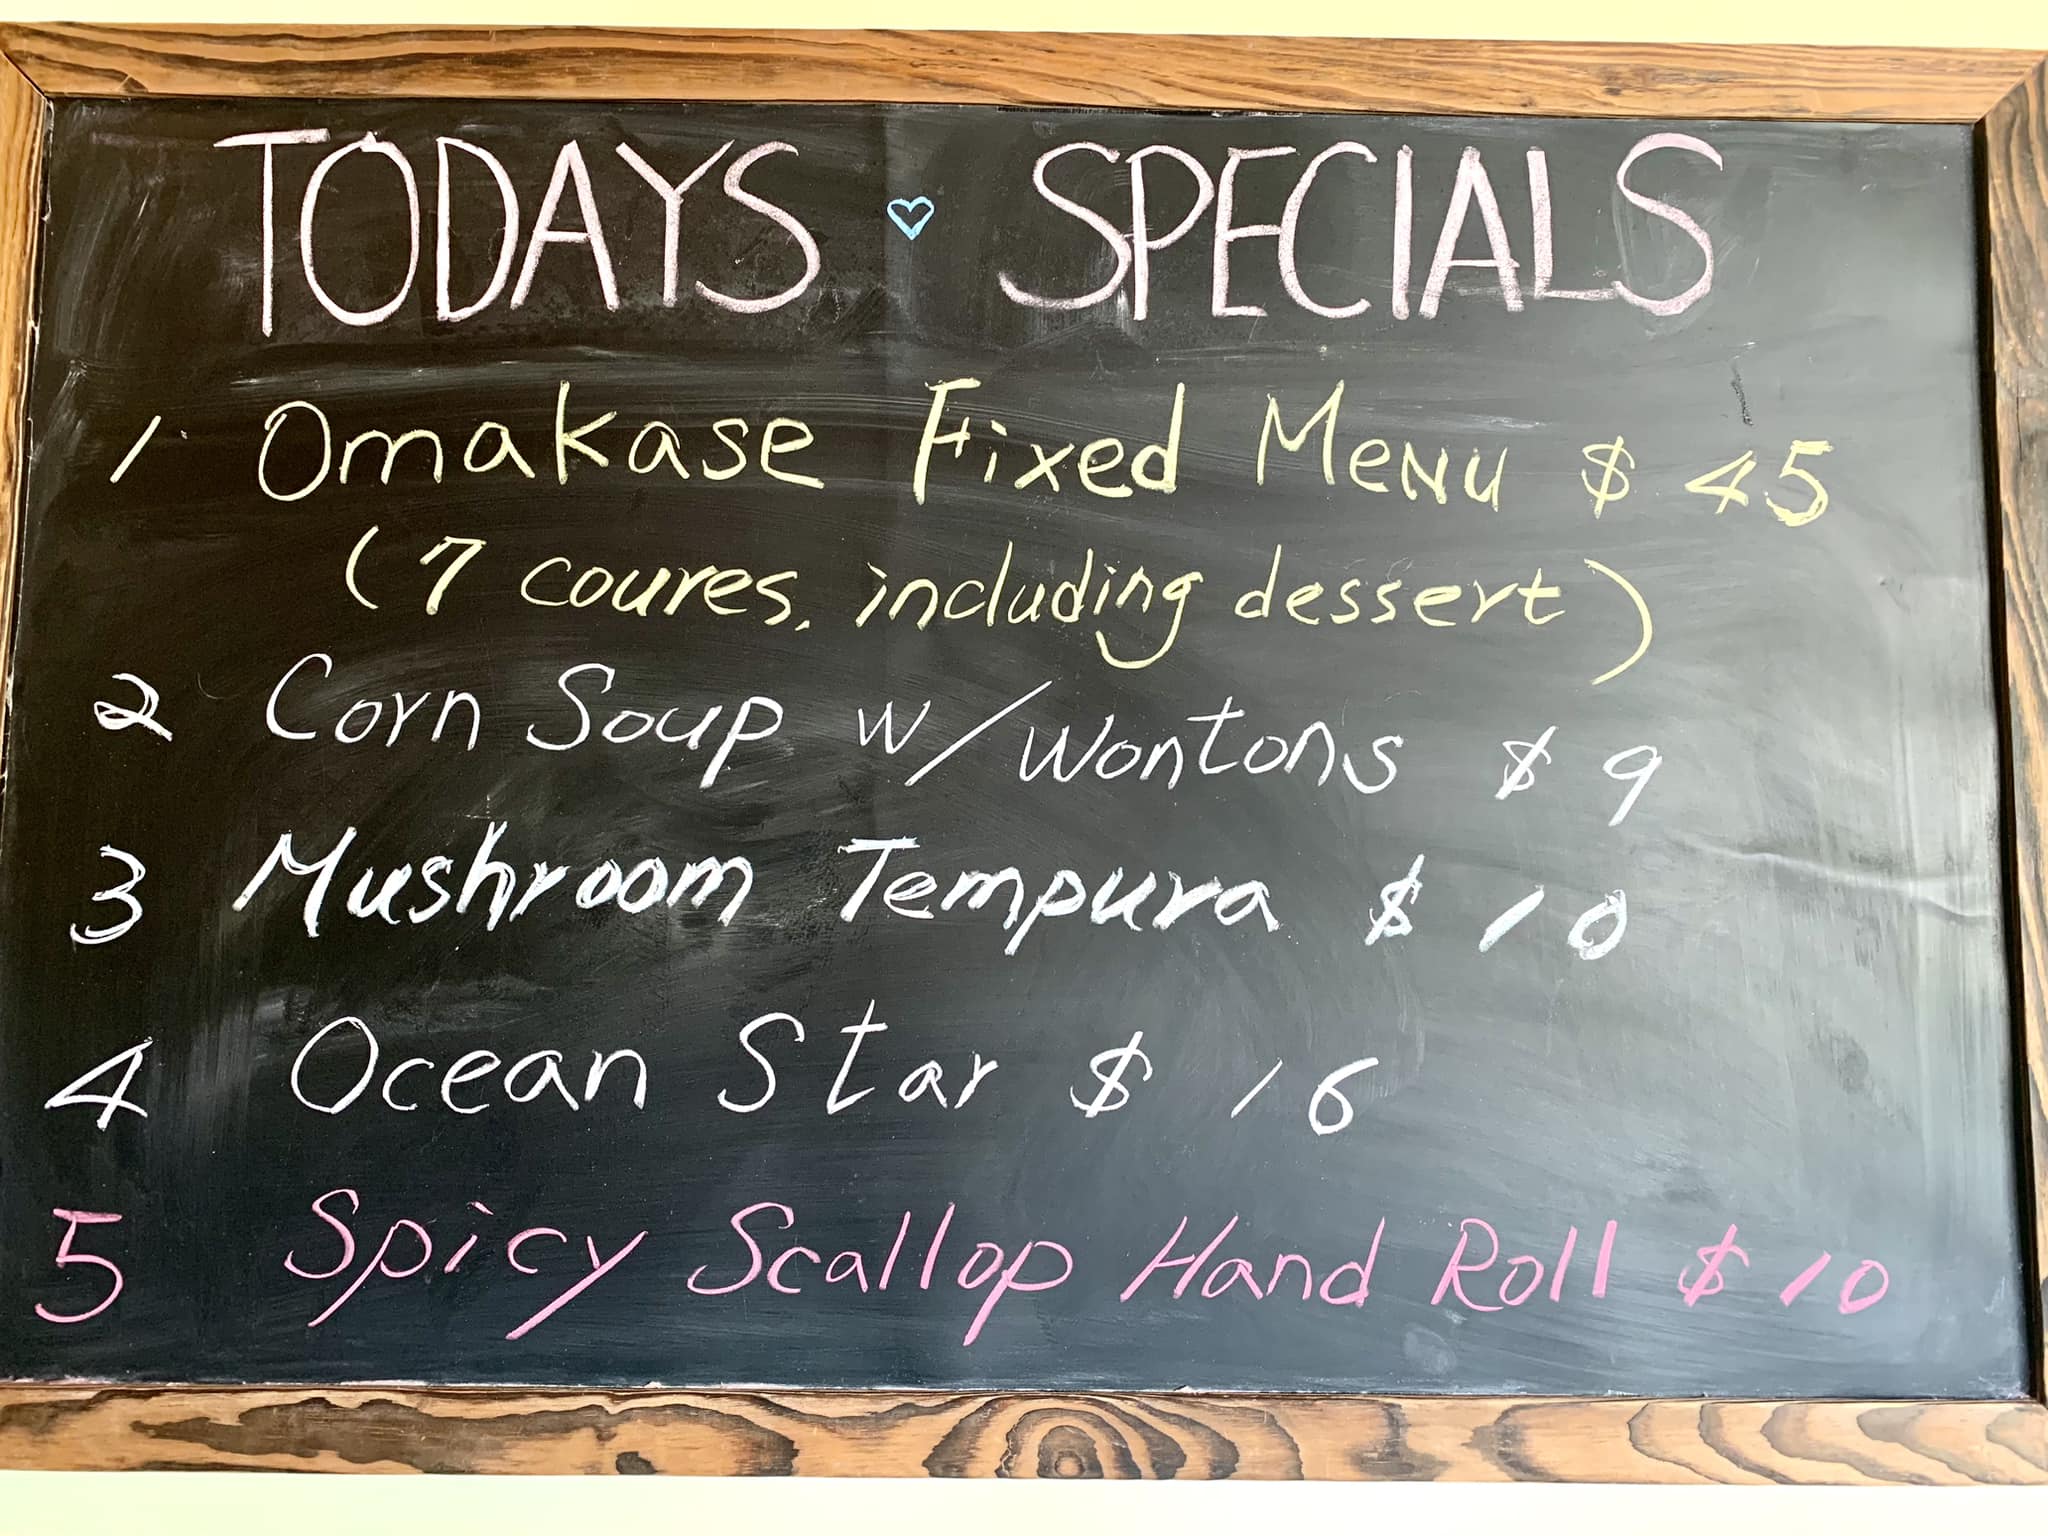 TODAYS SPECIALS
1 Omakase Fixed Menu $ 45
(7 coures, including dessert)
2 Corn Soup w/Wontons $ 9
3 Mushroom Tempura $ 10
4 Ocean Star $ 16
5 Spicy Scallop Hand Roll $ 10